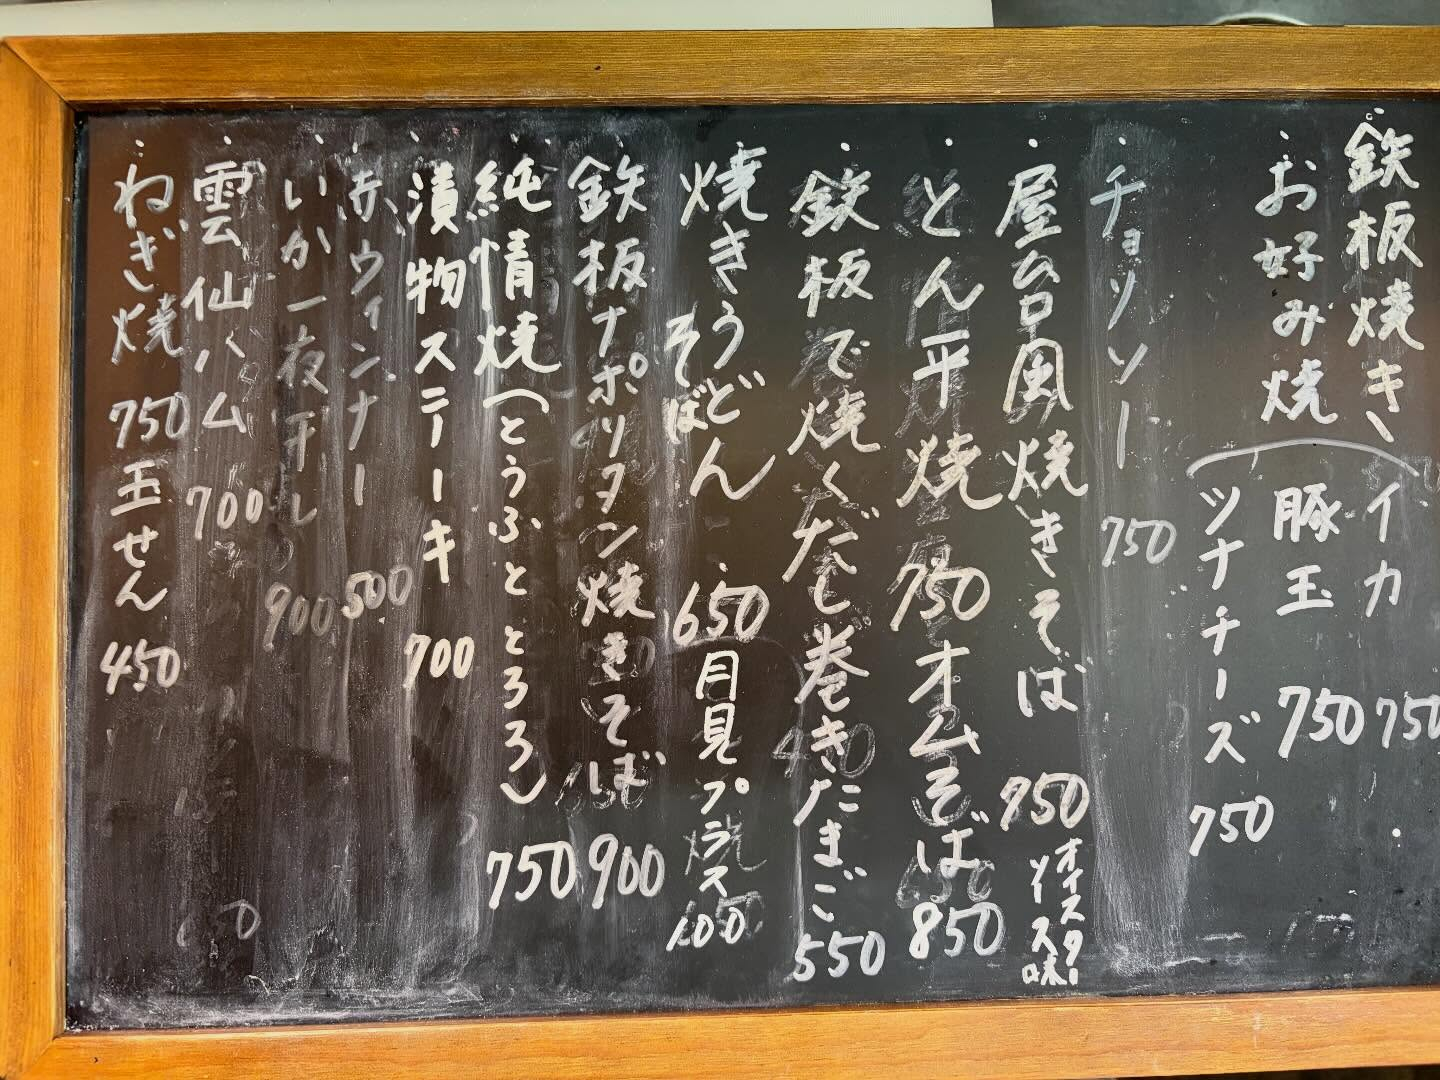 鉄板焼き
イカ 750
お好み焼
豚玉 750
ツナチーズ 750
チョリソー 750
屋台風焼きそば 750
オイスターソース味
とん平焼 750
オムそば 850
鉄板で焼くだし巻きたまご 550
焼きうどん 650
そばめん
月見プラス 100
鉄板ナポリタン焼きそば 900
純情焼(とうふととろろ) 750
漬物ステーキ 700
赤ウィンナー 500
いか一夜干し 900
雲仙ハム 700
ねぎ焼 750
玉せん 450